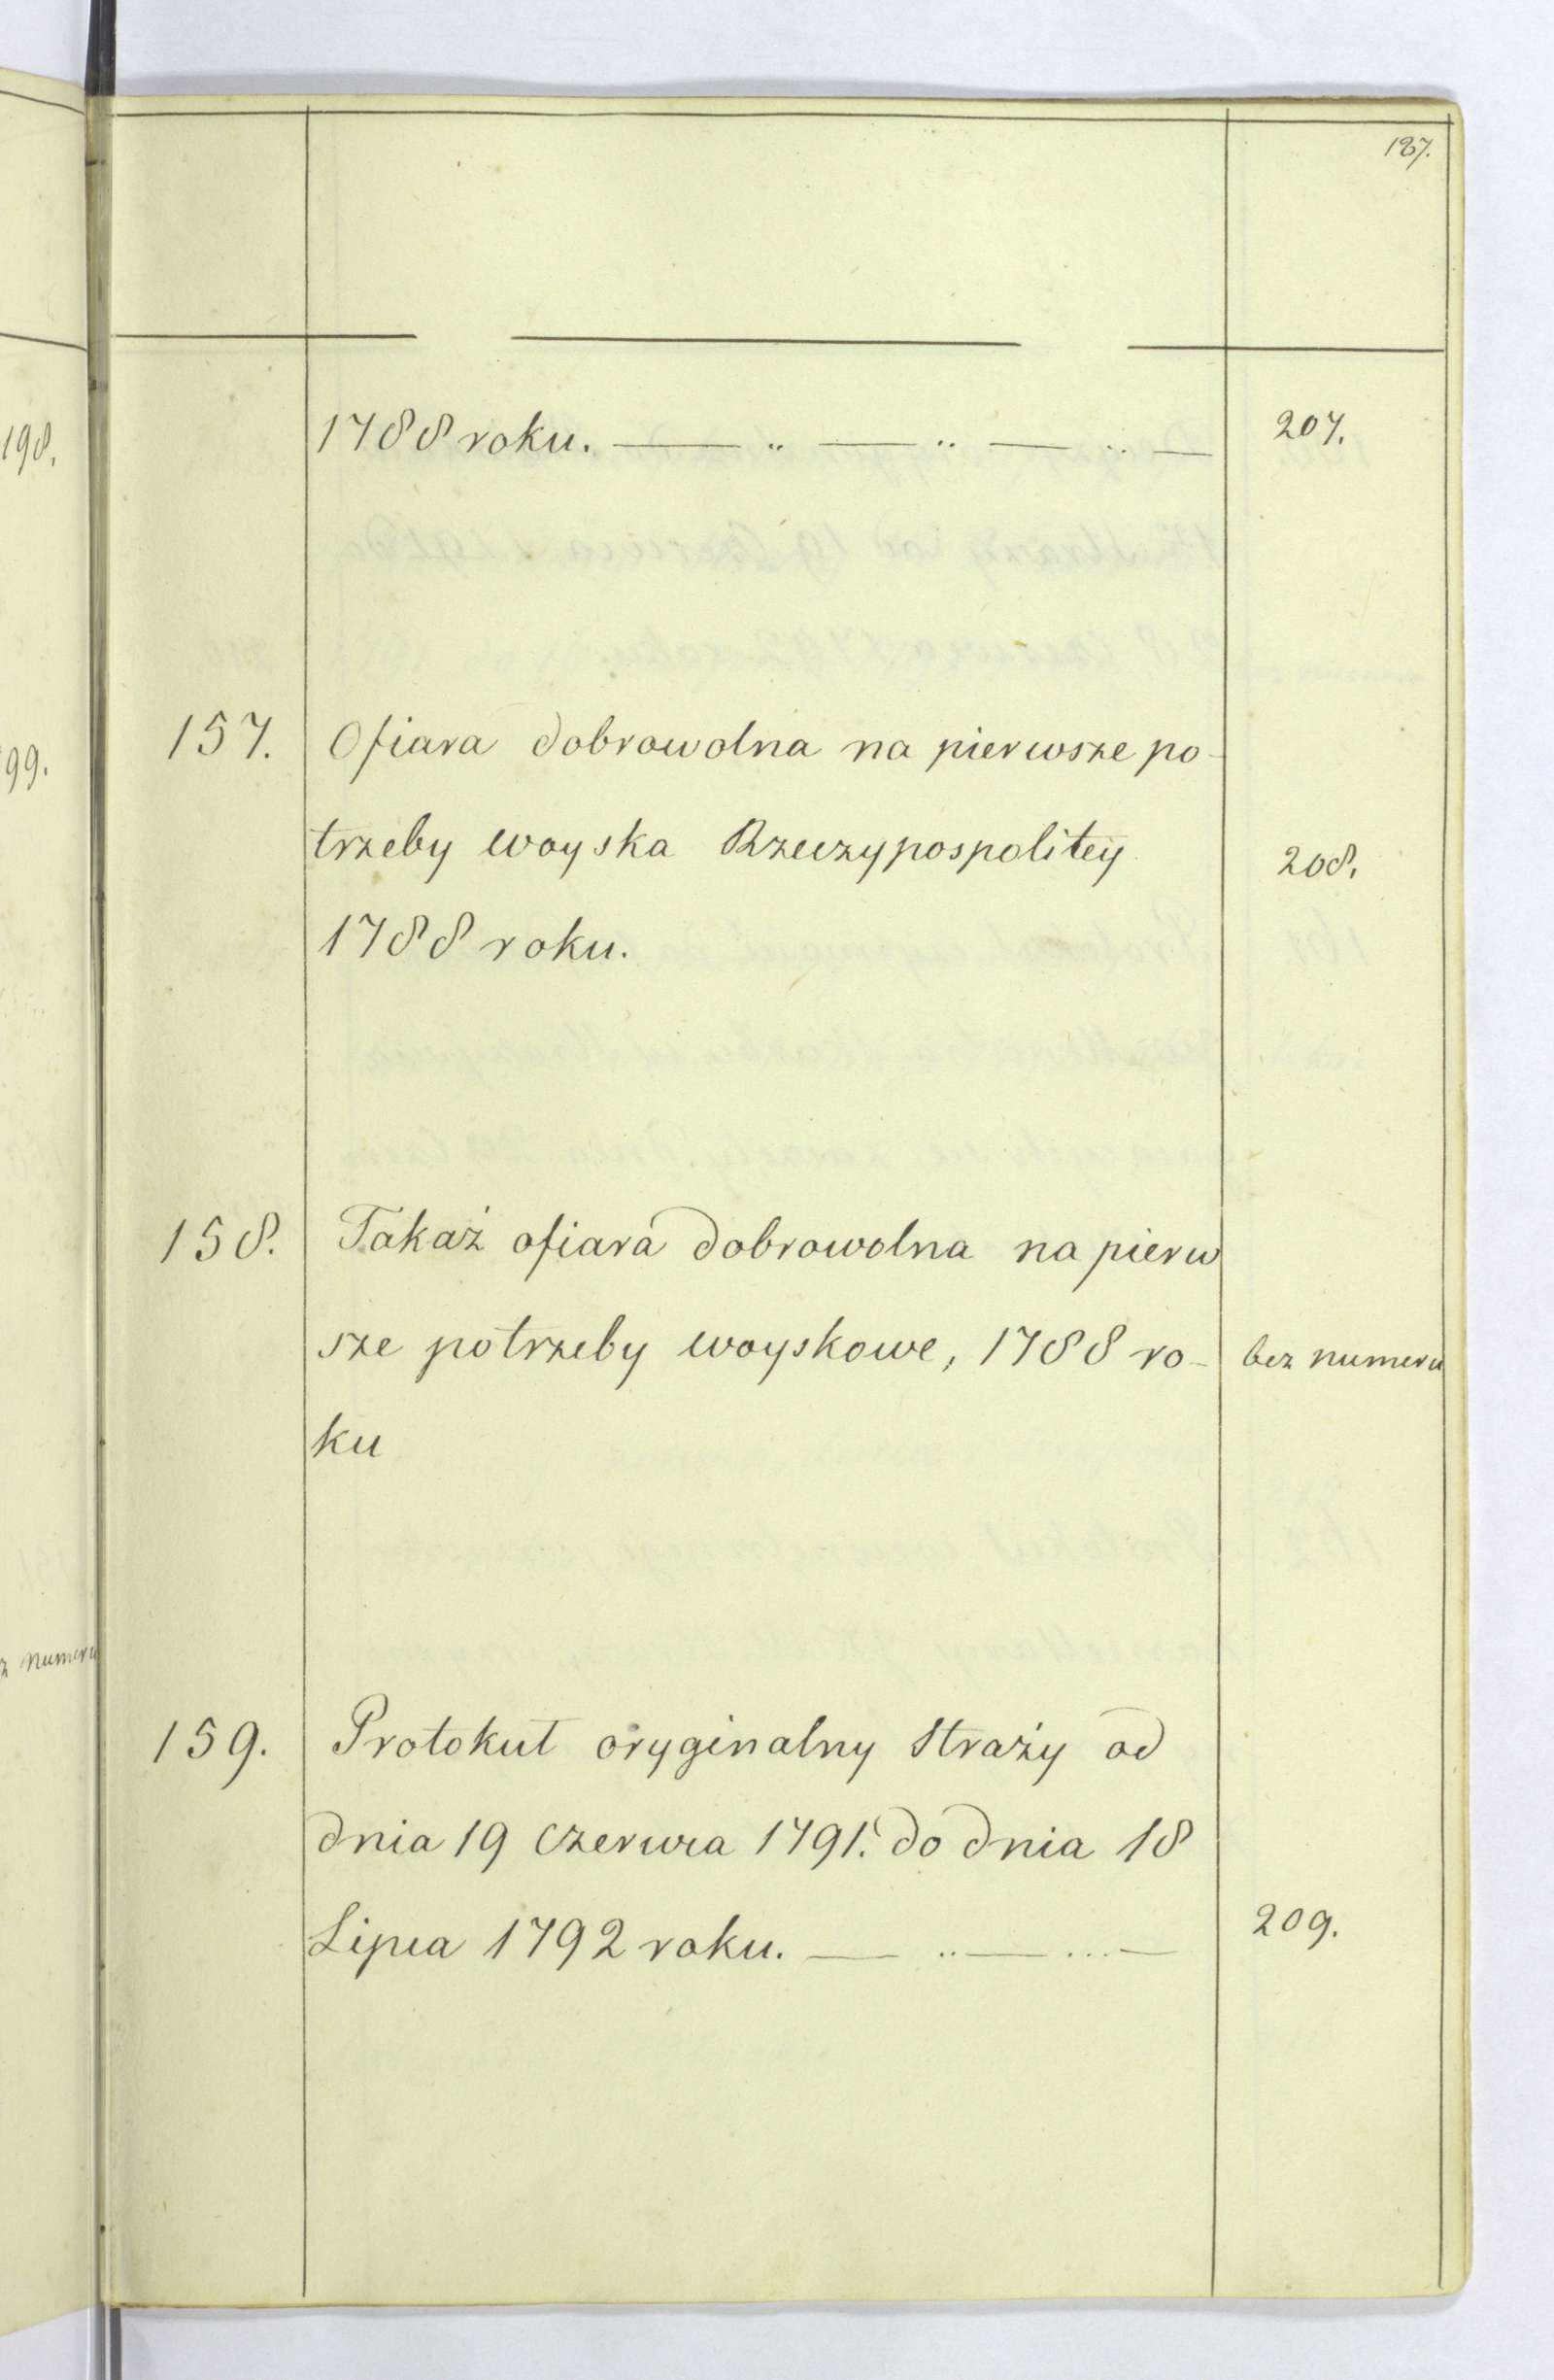 187.
198.
99.
z numeru
1788 roku. — .. — .. — .. — 207.
157. Ofiara dobrowolna na pierwsze po-
trzeby woyska Rzeczypospolitey 208.
1788 roku.
158. Takaż ofiara dobrowolna na pierw
sze potrzeby woyskowe, 1788 ro- bez numeru
ku
159. Protokuł oryginalny Straży od
dnia 19 Czerwca 1791. do dnia 18
Lipca 1792 roku. — .. — ... — 209.